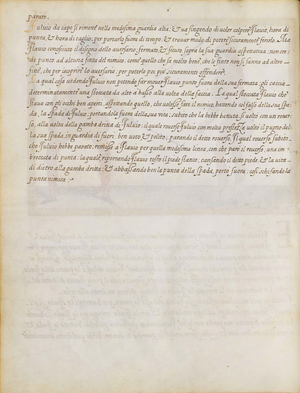 parato.
Fulvio da capo si rimesse nella medesima guardia alta: et uà fingendo di voler colpire Flavio, hora di
punta, & hora di taglio, per provarlo fuora di tempo, & trovar modo di potere sicuramente ferirlo. Ma
Flavio conosciuto il disegno dello aversario, fermato & sicuro, sopra la sua guardia aspettava: non cu-
de punto ad alcuna finta del nimico, come quello che sa molto bene, che le finte non si fanno ad altro
fine, che per scoprire lo aversario, per poterlo poi più sicuramente offendere.
La qual cosa vedendo Fulvio non potendo far muover Flavio punto fuora della sua fermezza: gli caccia
determinatamente una stoccata da alto a basso alla volta della faccia. La qual stoccata Flavio che
stava con gli occhi ben aperti, aspettando quello, che volesse fare il nimico, battendo col falso della sua spa-
da, la spada di Fulvio, portandola fuora della sua vita; subito che la hebbe battuta, si volto con un rover-
so, alla volta della gamba dritta di Fulvio: il quale rovescio Fulvio con molta prestezza, volto il pugno del-
la sua spada, in guardia di fuori, ben unito, & polito, parando il detto roverso. Il qual roverso subito,
che Fulvio hebbe parato, rimesse a Flavio per quella medesima linea, con che parò il roverso, una im-
broccata di punta: la quale riportando Flavio tosto il piede stante, cansandosi il detto piede, & la vita
di dietro alla gamba dritta: & abbassando ben la punta della spada, portò fuora, così, schifando la
punta nimica.